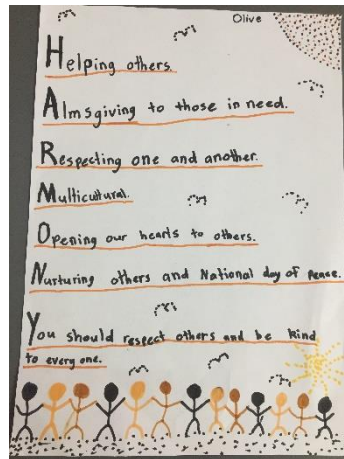 Olive
Helping others.
Almsgiving to those in need.
Respecting one and another.
Multicultural.
Opening our hearts to others.
Nurturing others and National day of Peace.
You should respect others and be kind
to every one.